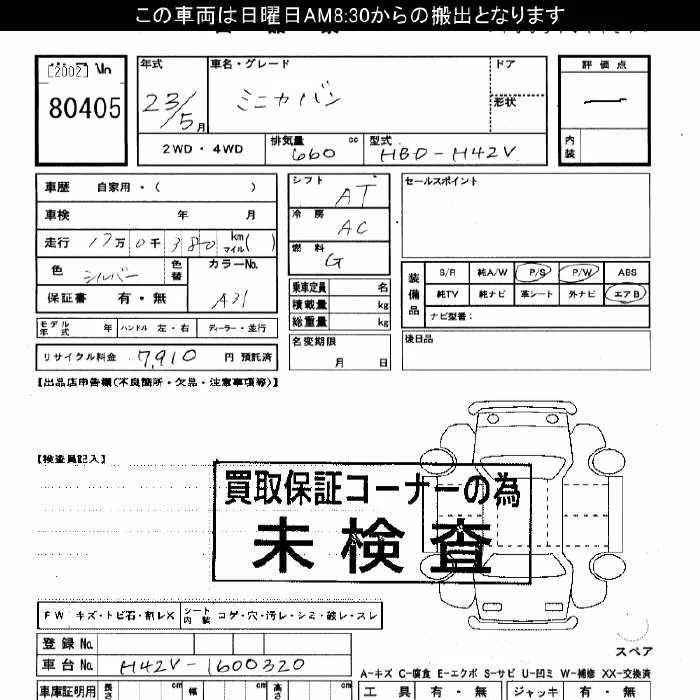 この車両は日曜日AM8:30からの搬出となります
[2002] No
80405
年式 車名・グレード ドア 評価点
23/5月 ミニカバン 形状 ―
2WD・4WD 排気量 660 cc 型式 HBD-H42V 内装
車歴 自家用・( )
車検 年 月
走行 17万0千380 km マイル( )
色 シルバー 色替 カラーNo. A31
保証書 有・無
モデル年式 年 ハンドル 左・右 ディーラー・並行
リサイクル料金 7,910 円 預託済
シフト AT
冷房 AC
燃料 G
乗車定員 名
積載量 kg
総重量 kg
名変期限
月 日
セールスポイント
装備品 S/R 純A/W P/S P/W ABS
純TV 純ナビ 革シート 外ナビ エアB
ナビ型番:
後日品
【出品店申告欄(不良箇所・欠品・注意事項等)】
【検査員記入】
買取保証コーナーの為
未検査
FW キズ・トビ石・割レX シート内装 コゲ・穴・汚レ・シミ・破レ・スレ
登録No.
車台No. H42V-1600320
スペア
A-キズ C-腐食 E-エクボ S-サビ U-凹ミ W-補修 XX-交換済
車庫証明用 長さ cm 幅 cm 高さ cm 工具 有・無 ジャッキ 有・無